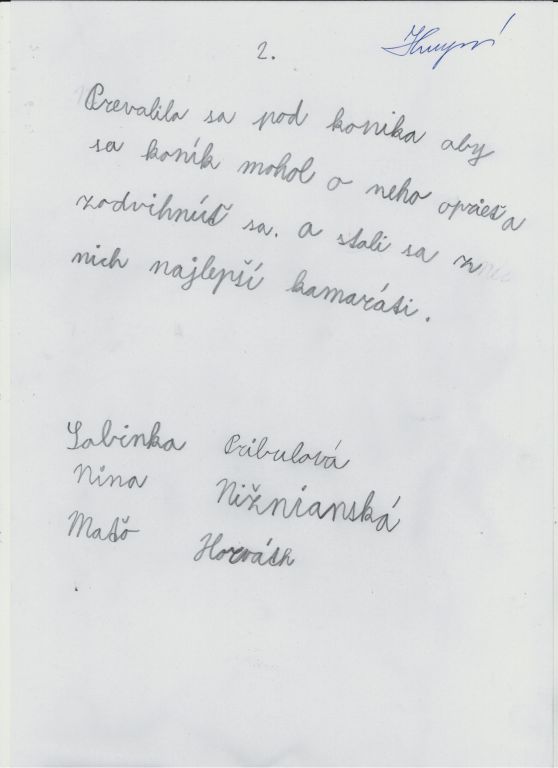 2.
Prevalila sa pod konika aby
sa koník mohol o neho oprieť a
zodvihnúť sa. a stali sa z
nich najlepší kamaráti.
Sabinka Pribulová
Nina Nižnianská
Maťo Horváth